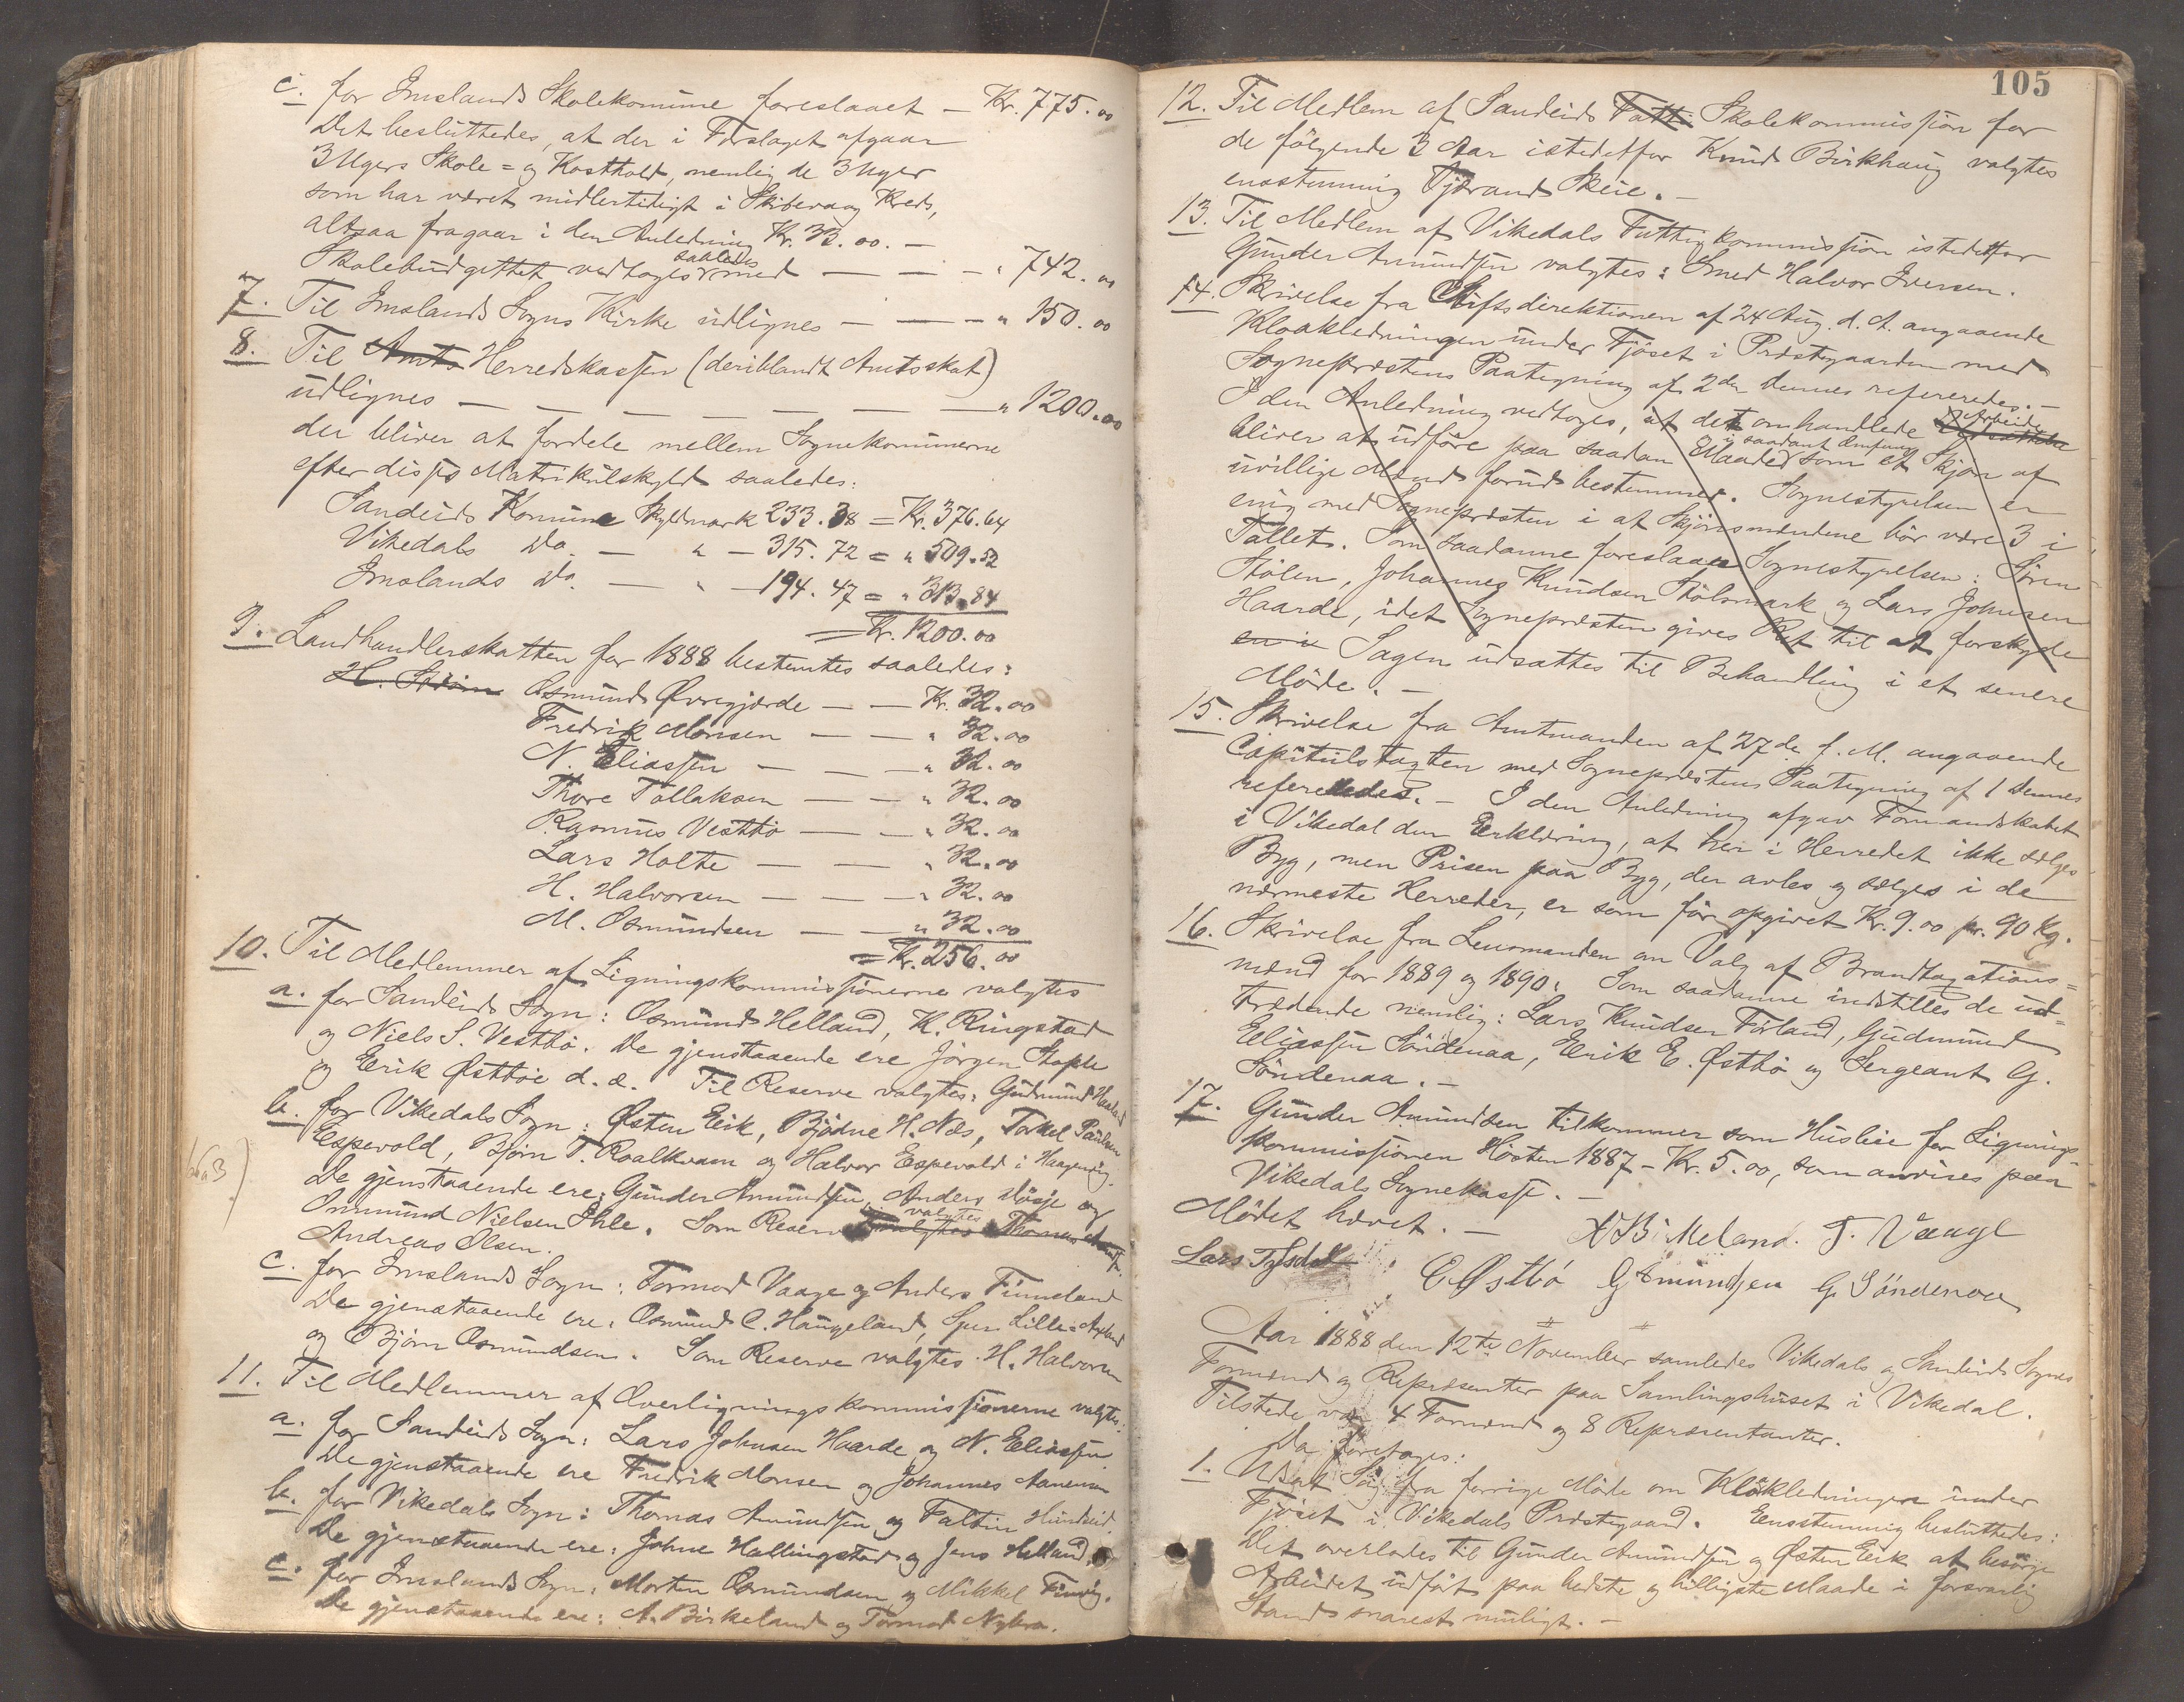 c. for Imslands Skolekomune foreslaaet — Kr. 775.00
Det besluttedes, at der i Forslaget afgaar
3 Ugers Skole= og Kosthold, nemlig de 3 Uger
som har været midlertidigt i Skibevaag Kreds,
altsaa fragaar i den Anledning Kr. 33.00. —
saaledes
Skolebudgettet vedtoges med — — — " 742.00
7. Til Imslands Sogns Kirke udlignes — — — " 150.00
8. Til Amts Herredskassen (deriblandt Amtsskat)
udlignes — — — — — — — " 1200.00
der bliver at fordele mellem Sognekomunerne
efter disses Matrikulskyld saaledes:
Sandeids Komune Skyldmark 233.38 = Kr. 376.64
Vikedals Do. — " — 315.72 = " 509.52
Imslands Do. — " — 194.47 = " 313.84
= Kr. 1200.00
9. Landhandlerskatten for 1888 bestemtes saaledes:
H. Ström Osmund Øvregjærde — — Kr. 32.00
Fredrik Monsen — — " 32.00
N. Eliassen — — — " 32.00
Thore Tollaksen — — " 32.00
Rasmus Vestbø — — " 32.00
Lars Holte — — " 32.00
H. Halvorsen — — — " 32.00
M. Osmundsen — — " 32.00
= Kr. 256.00
10. Til Medlemmer af Ligningskommissionerne valgtes
a. for Sandeids Sogn: Osmund Helland, K. Ringstad
og Niels S. Vestbø. De gjenstaaende ere Jørgen Stople
og Erik Østbøe d. æ. Til Reserve valgtes: Gudmund Haaland
b. for Vikedals Sogn: Østen Eik, Bjødne H. Næs, Torkel Paulsen
Espevold, Bjørn T. Roalkvam og Halvor Espevold i Haugevig.
De gjenstaaende ere: Gunder Amundsen, Anders Mosje og
valgtes
Ommund Nielsen Øhle. Som Reserve valgtes Thomas Amundsen
Andreas Olsen.
c. for Imslands Sogn: Tormod Vaage og Anders Finneland
De gjenstaaende ere: Osmund C. Haugeland, Sven Lille=Axland
og Bjørn Osmundsen. Som Reserve valgtes H. Halvorsen
11. Til Medlemmer af Overligningskommissionerne valgtes:
a. for Sandeids Sogn: Lars Johnsen Haarde og N. Eliassen.
De gjenstaaende ere Fredrik Monsen og Johannes Aanensen
b. for Vikedals Sogn: Thomas Amundsen og Faltin Hundseid.
De gjenstaaende ere: Johne Hallingstad og Jens Helland.
c. for Imslands Sogn: Morten Osmundsen og Mikkel Finvig.
De gjenstaaende ere: A. Birkeland og Tormod Nykra.
105
12. Til Medlem af Sandeids Fatti Skolekommission for
de følgende 3 Aar istedetfor Knud Birkhaug valgtes
ensstemmig Tjærand Skeie. —
13. Til Medlem af Vikedals Fattigkommission istedetfor
Gunder Amundsen valgtes: Smed Halvor Iversen.
14. Skrivelse fra Stiftsdirektionen af 24 Aug. d. A. angaaende
Kloakledningen under Fjøset i Præstegaarden med
Sognepræstens Paategning af 2den dennes refereredes. —
I den Anledning vedtoges, at det omhandlede Arbeide
bliver at udføre paa saadan Maade i saadant Omfang som et Skjøn af
uvillige Mænd forud bestemmer. Sognestyrelsen er
enig med Sognepræsten i at Skjønsmændene bør være 3 i
Tallet. Som saadanne foreslaaes Sognestyrelsen: Søren
Stølen, Johannes Knudsen Stølsmark og Lars Johnsen
Haarde, idet Sognepræsten gives Ret til at forskyde
en i Sagen udsattes til Behandling i et senere
Møde. —
15. Skrivelse fra Amtmanden af 27de f. M. angaaende
Capitulstaxten med Sognepræstens Paategning af 1 dennes
refereredes. — I den Anledning afgav Formandskabet
i Vikedal den Erklæring, at her i Herredet ikke sælges
Byg, men Prisen paa Byg, der avles og sælges i de
nærmeste Herreder, er som før opgivet Kr. 9.00 pr. 90 Kg.
16. Skrivelse fra Lensmanden om Valg af Brandtaxations=
mænd for 1889 og 1890. Som saadanne indstilles de ud=
trædende nemlig: Lars Knudsen Førland, Gudmund
Eliassen Söndenaa, Erik E. Østbø og Sergeant G.
Söndenaa. —
17. Gunder Amundsen tilkommer som Husleie for Lignings=
kommissionen Høsten 1887 — Kr. 5.00, som anvises paa
Vikedals Sognekasse. —
Mødet hævet. — A B Meland. T. Vaage
Lars Tysdal E Østbø G Amundsen G. Söndenaa
Aar 1888 den 12te November samledes Vikedals og Sandeids Sognes
Formænd og Repræsenter paa Samlingshuset i Vikedal.
Tilstede var 4 Formænd og 8 Repræsentanter.
Da foretoges:
1. Udsat Sag fra forrige Møde om Kloakledningen under
Fjøset i Vikedals Præstegaard. Eensstemmig besluttedes:
Det overlodes til Gunder Amundsen og Østen Eik at besørge
Arbeidet udført paa bedste og billigste Maade i forsvarlig
Stand snarest muligt. —